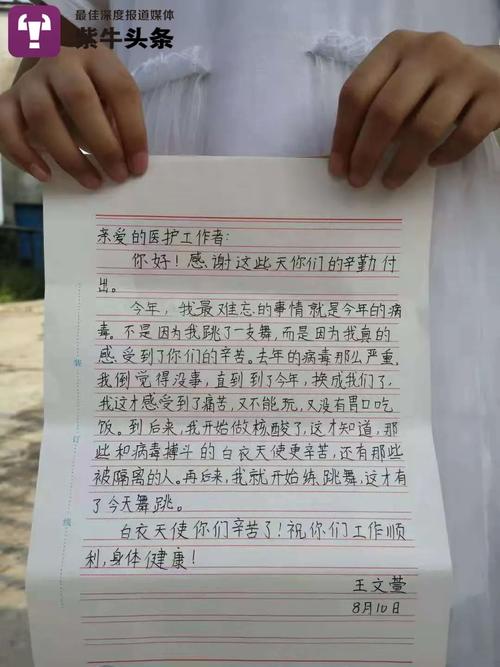 最佳深度报道媒体
紫牛头条
亲爱的医护工作者:
你好！感谢这些天你们的辛勤付
出。
今年，我最难忘的事情就是今年的病
毒。不是因为我跳了一支舞，而是因为我真的
感受到了你们的辛苦。去年的病毒那么严重，
我倒觉得没事，直到到了今年，换成我们了，
我这才感受到了痛苦，又不能玩，又没有胃口吃
饭。到后来，我开始做核酸了，这才知道，那
些和病毒搏斗的白衣天使更辛苦，还有那些
被隔离的人。再后来，我就开始练跳舞，这才有
了今天舞跳。
白衣天使你们辛苦了！祝你们工作顺
利，身体健康！
王文萱
8月10日
装
订
线